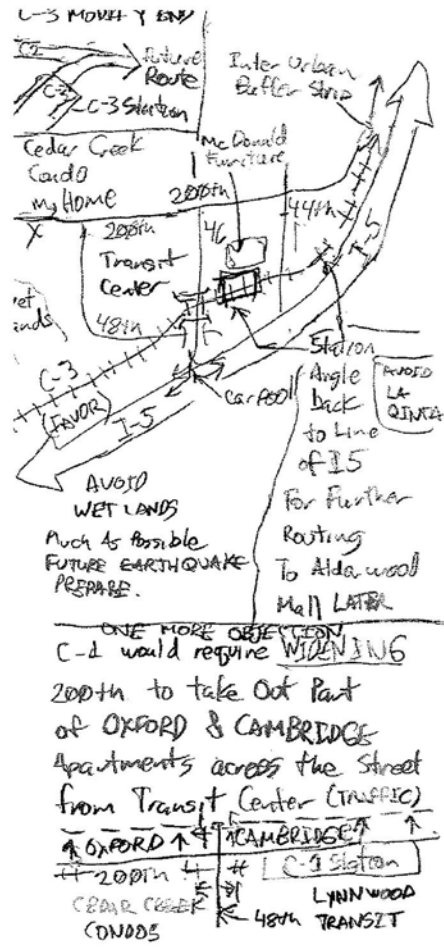 C-3 MODIFY END
C2
Future
Route
C-2
C-3 Station
Inter Urban
Buffer Strip
Cedar Creek
Condo
My HOME
X
McDonald
Furniture
200th
44th
I-5
200th
Transit
Center
48th
46
wet
lands
C-3
(FAVOR)
I-5
car pool
Station
Angle
back
to Line
of I5
For Further
Routing
To Alderwood
Mall LATER
AVOID
LA
QINTA
AVOID
WET LANDS
Much As Possible
FUTURE EARTHQUAKE
PREPARE.
ONE MORE OBJECTION
C-1 would require WIDENING
200th to take Out Part
of OXFORD & CAMBRIDGE
Apartments across the Street
from Transit Center (TRAFFIC)
OXFORD
CAMBRIDGE
200th
C-1 Station
CEDAR CREEK
CONDOS
48th
LYNNWOOD
TRANSIT